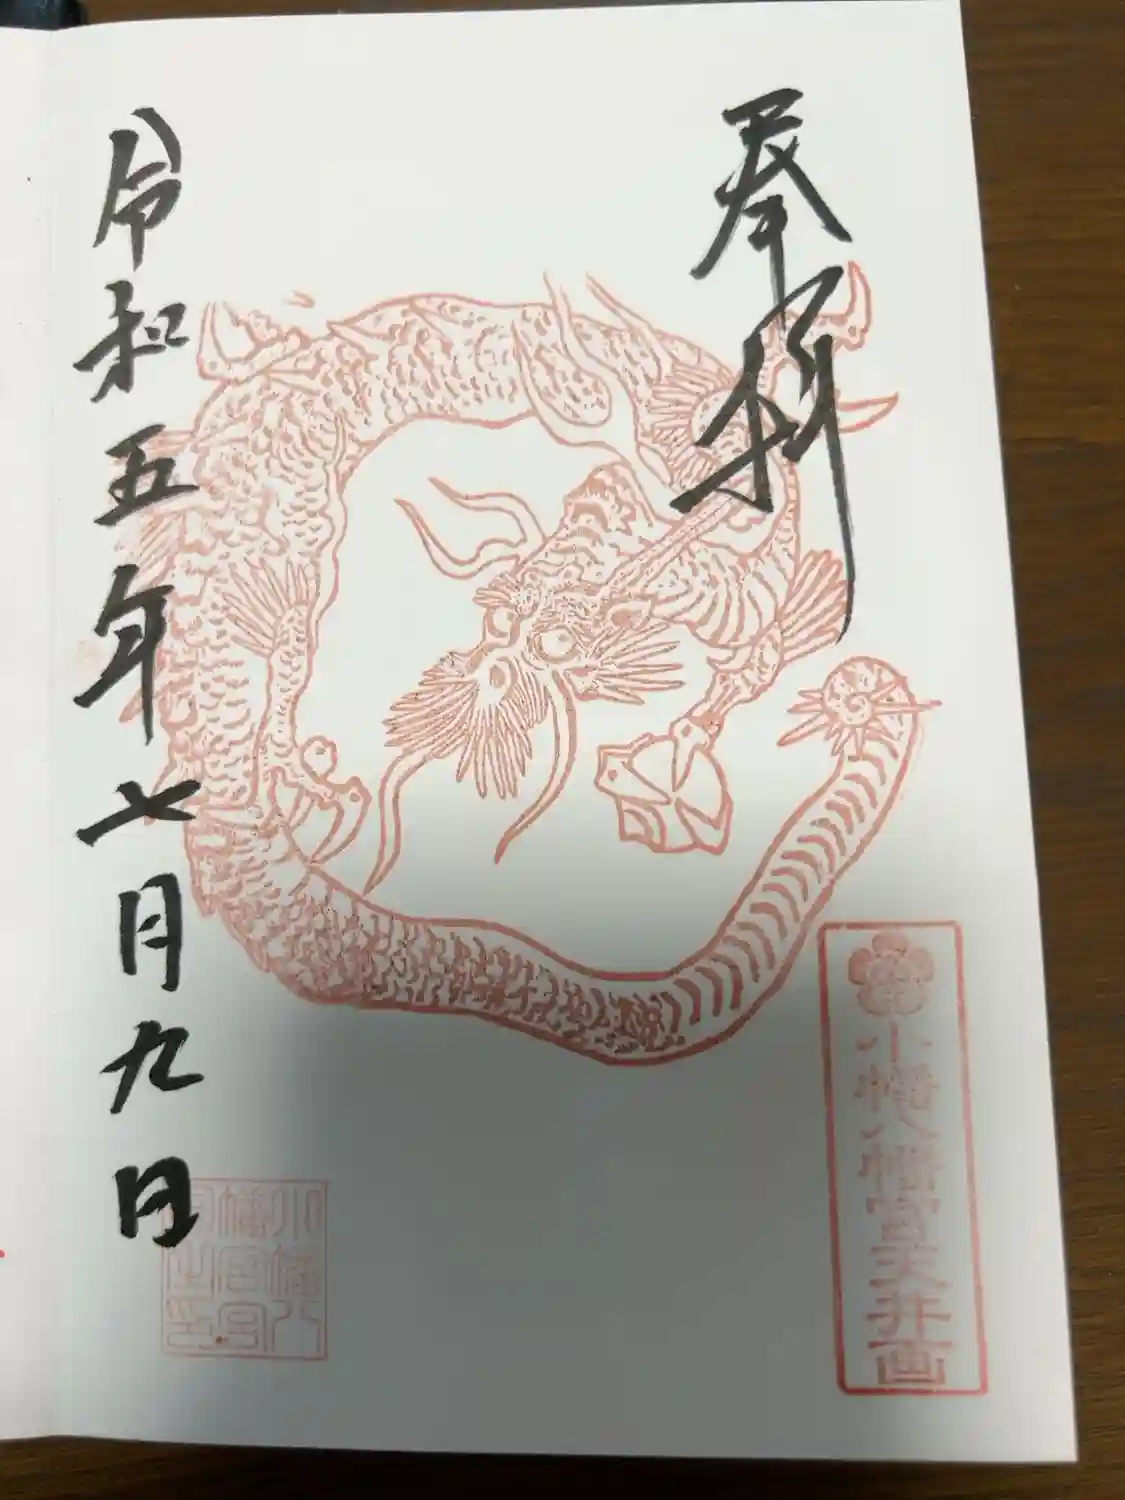 奉拝
小幡八幡宮天井画
令和五年七月九日
小幡八
幡宮宮
司之印